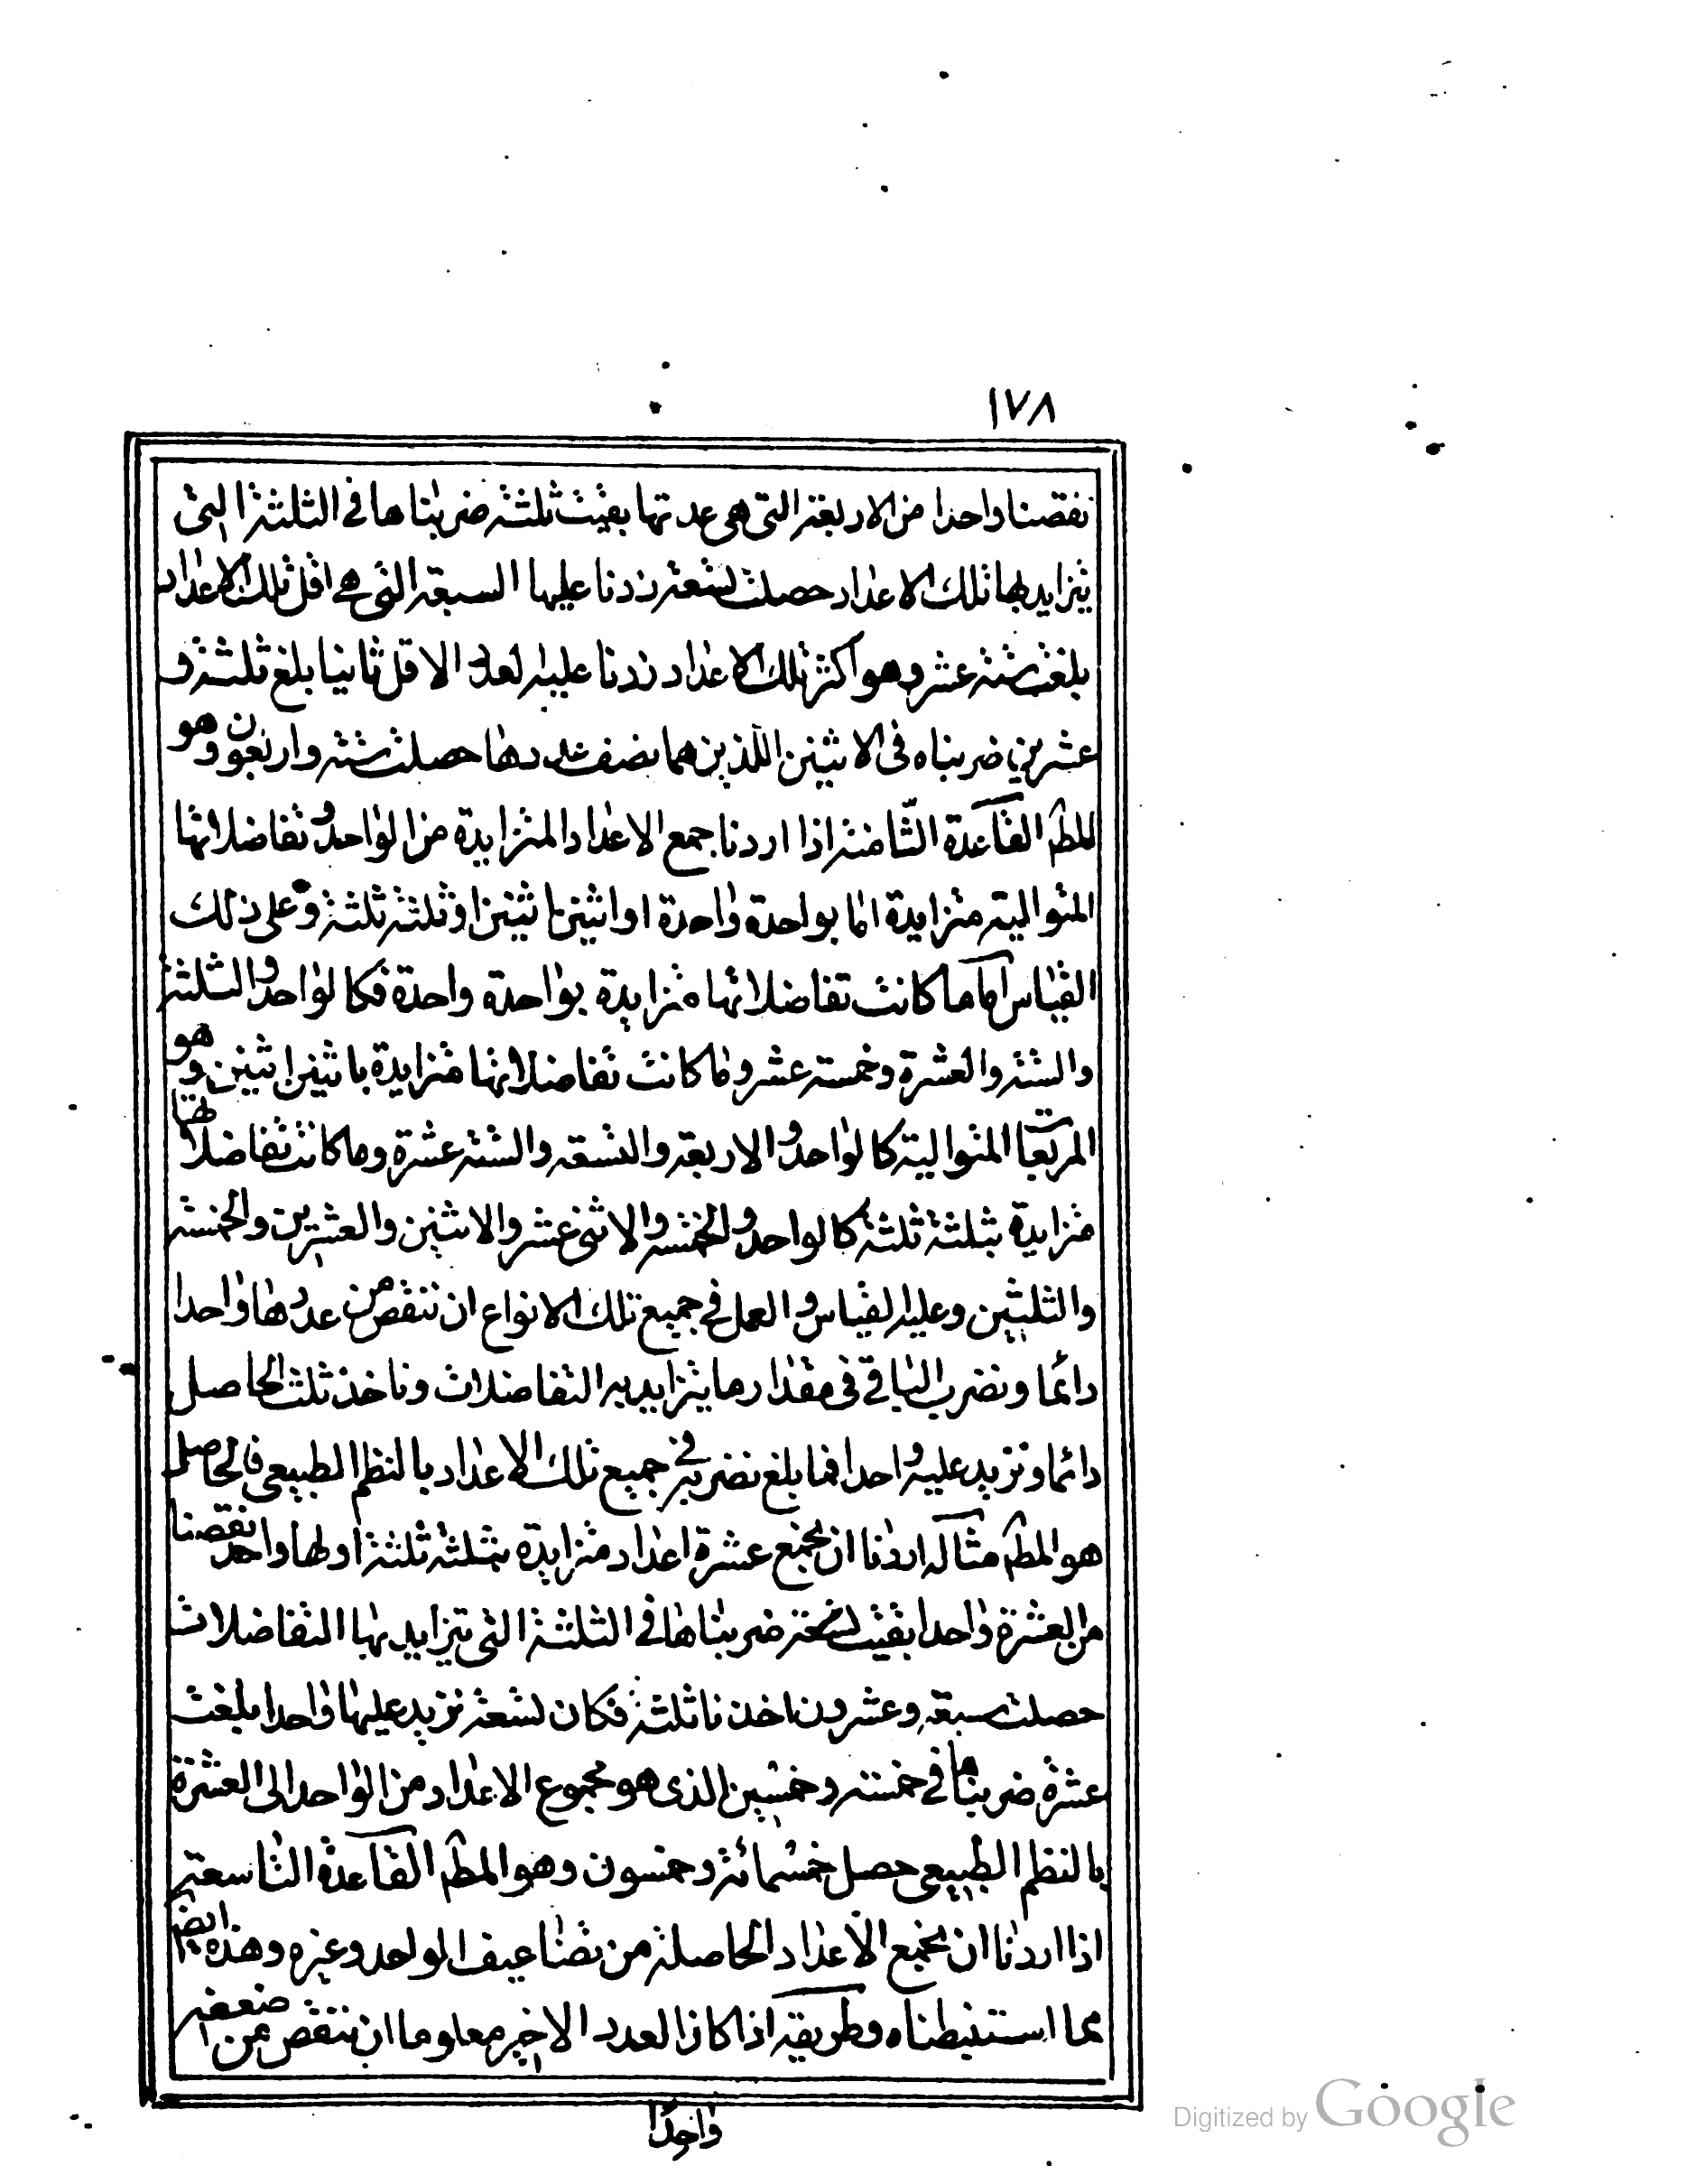 ١٧٨
نقصنا واحدا من الاربعة التى هى عدتها بقيت ثلثة ضربناها فى الثلثة التى
تتزايد بها تلك الاعداد حصلت تسعة زدنا عليها السبعة التى هى اقل تلك الاعداد
بلغت ستة عشر وهو اكثر تلك الاعداد زدنا عليه العدد الاقل ثانيا بلغ ثلثة و
عشرين ضربناه فى الاثنين اللذين هما نصف عددها حصلت ستة واربعون وهو
المط القاعدة الثامنة اذا اردنا جمع الاعداد المتزايدة من الواحد وتفاضلاتها
المتوالية متزايدة اما بواحدة واحدة او اثنين اثنين او ثلثة ثلثة وعلى ذلك
القياس اما ما كانت تفاضلاتها متزايدة بواحدة واحدة فكالواحد والثلثة
والستة والعشرة وخمسة عشر وما كانت تفاضلاتها متزايدة باثنين اثنين وهو
المربعات المتوالية كالواحد والاربعة والتسعة والستة عشرة وما كانت تفاضلاتها
متزايدة بثلثة ثلثة كالواحد والخمسة والاثنى عشر والاثنين والعشرين والخمسة
والثلثين وعليه القياس والعمل فى جميع تلك الانواع ان ننقص من عددها واحدا
دائما ونضرب الباقى فى مقدار ما يتزايد به التفاضلات وناخذ ثلث الحاصل
دائما ونزيد عليه واحدا فما بلغ نضربه فى جميع تلك الاعداد بالنظم الطبيعى فالحاصل
هو المط مثاله اردنا ان نجمع عشرة اعداد متزايدة بثلثة ثلثة اولها واحد نقصنا
من العشرة واحدا بقيت تسعة ضربناها فى الثلثة التى تتزايد بها التفاضلات
حصلت سبعة وعشرون اخذنا ثلثه فكان تسعة نزيد عليها واحدا بلغت
عشرة ضربناها فى خمسة وخمسين الذى هو مجموع الاعداد من الواحد الى العشرة
بالنظم الطبيعى حصل خمسمائة وخمسون وهو المط القاعدة التاسعة
اذا اردنا ان نجمع الاعداد الحاصلة من تضاعيف الواحد وغيره وهذه ايضا
مما استنبطناه وطريقه اذا كان العدد الاخير معلوما ان ننقص من ضعفه
واحدًا
Digitized by Google